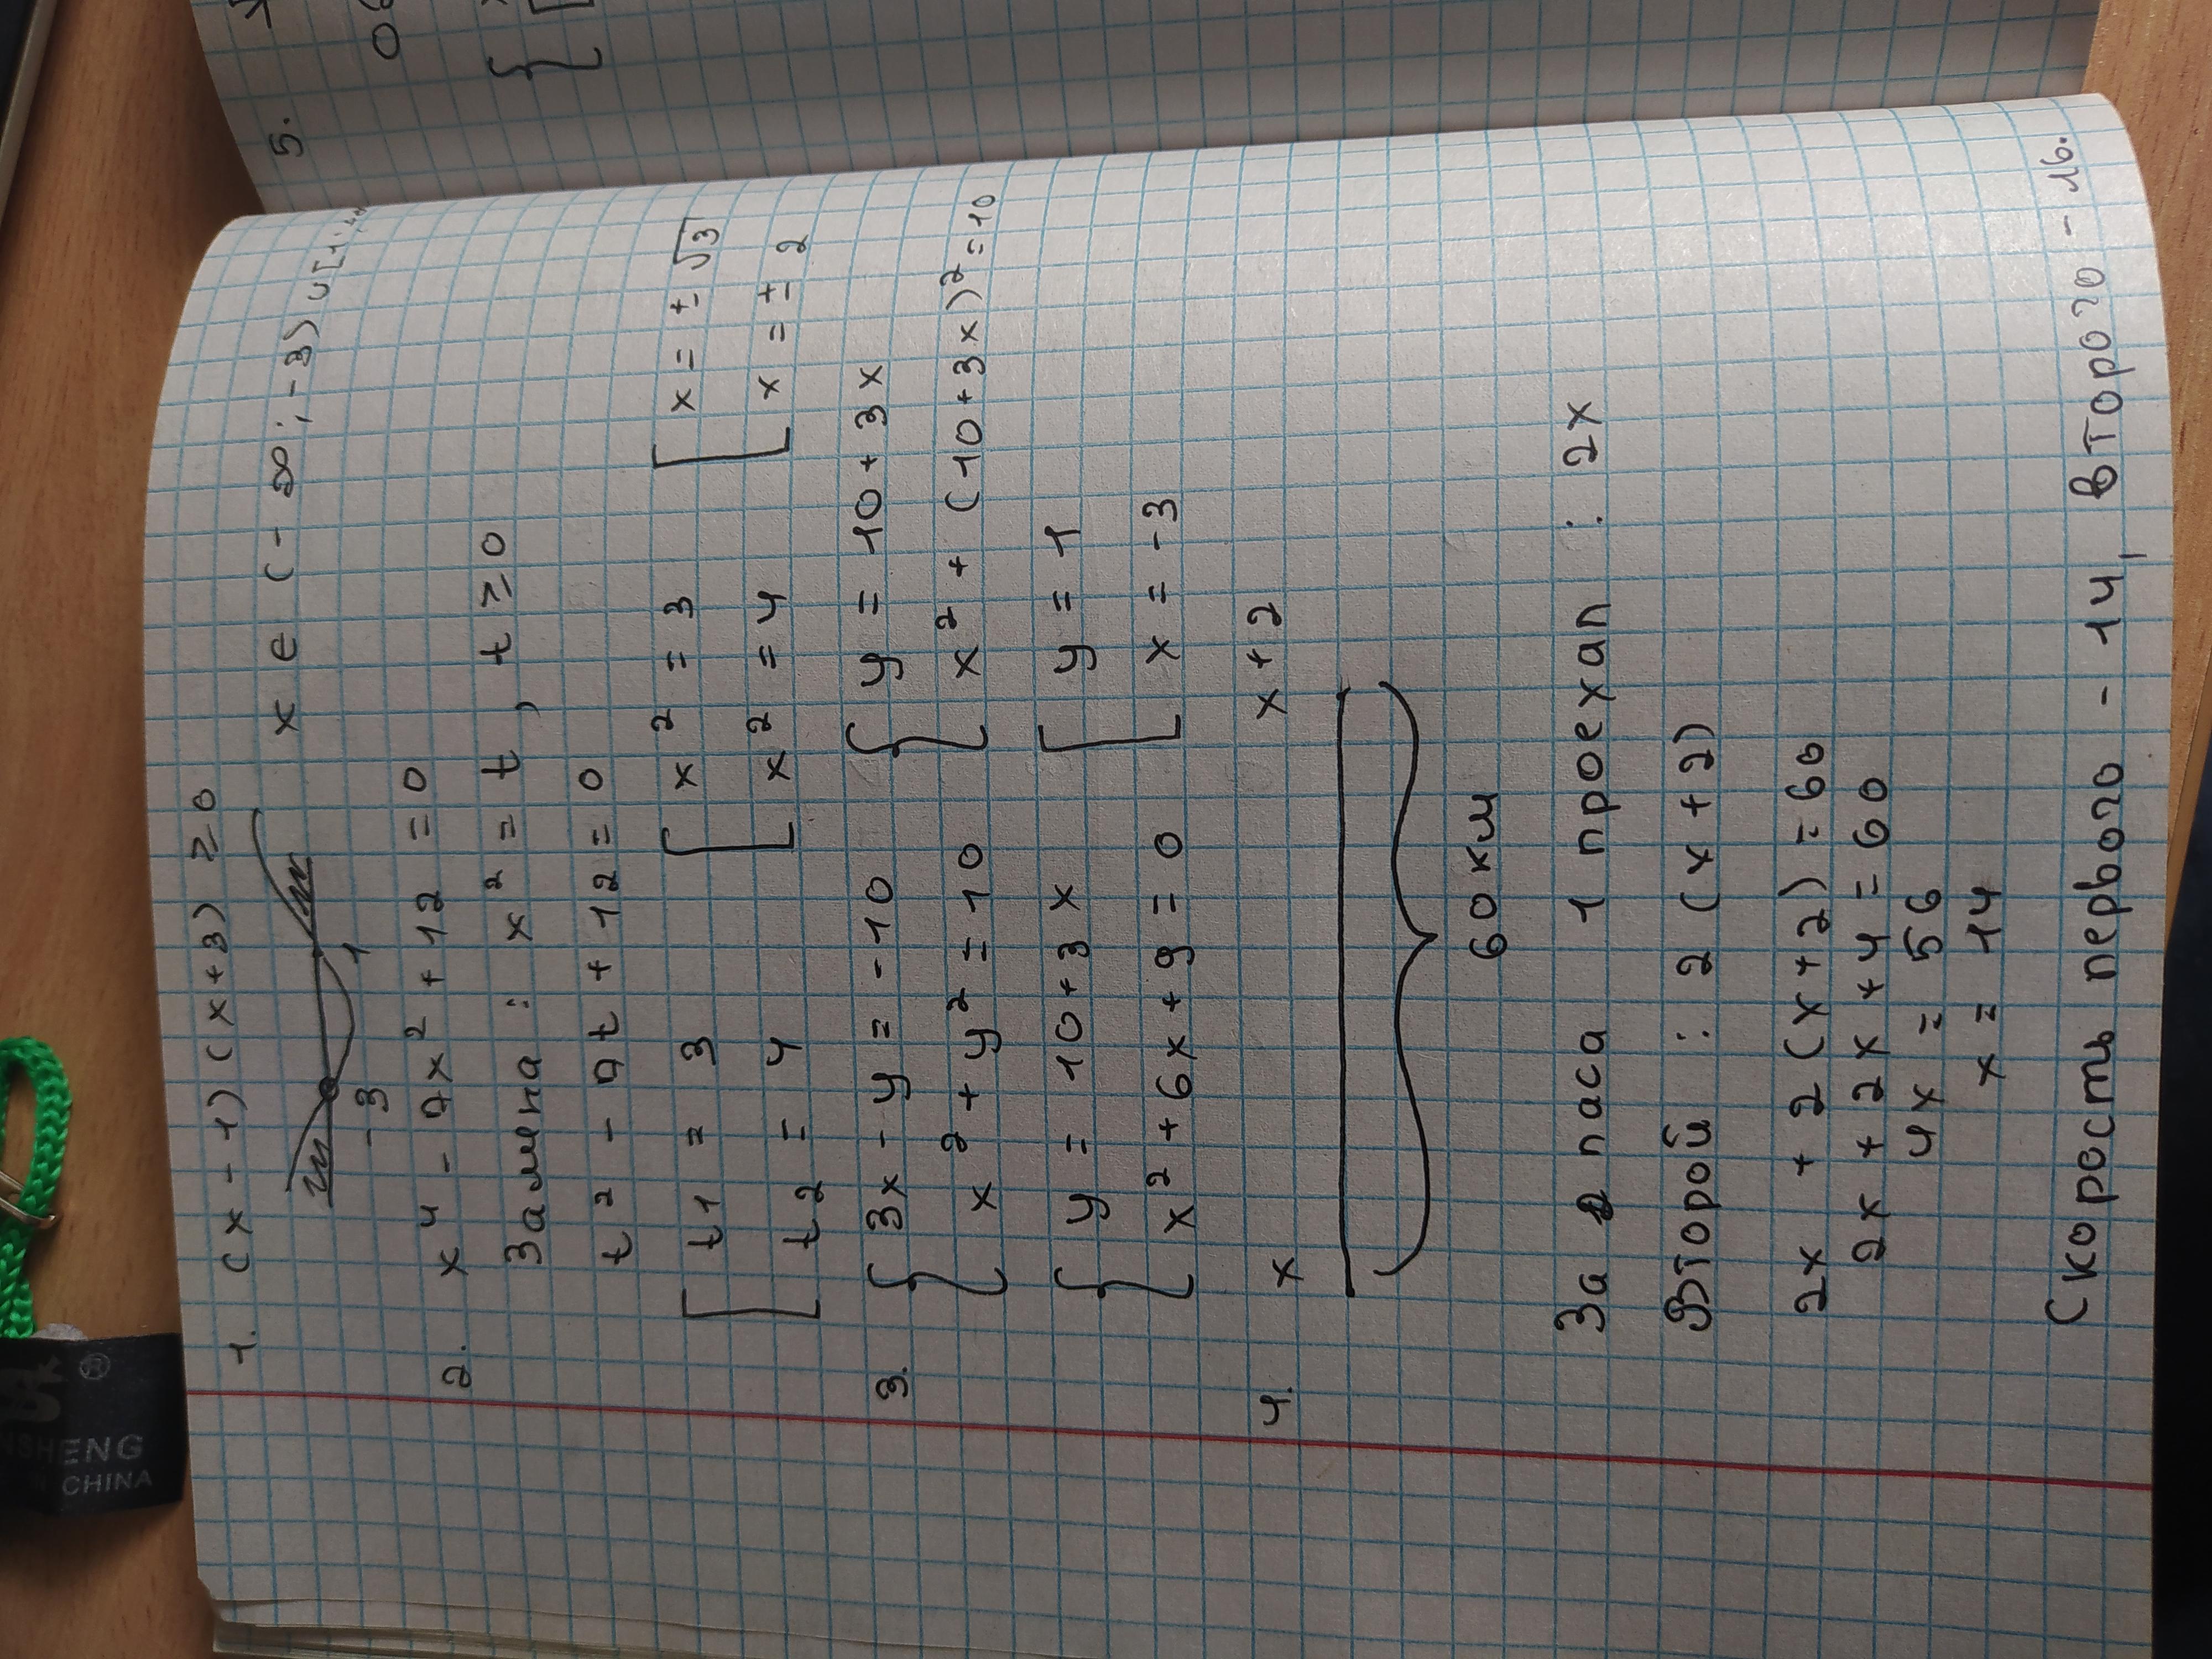 1. (x-1)(x+3) ≥ 0
-3 1 x ∈ (-∞; -3) ∪ [1;
2. x⁴ - 7x² + 12 = 0
Замена : x² = t , t ≥ 0
t² - 7t + 12 = 0
[ t1 = 3 [ x² = 3 [ x = ± √3
[ t2 = 4 [ x² = 4 [ x = ± 2
3. { 3x - y = -10 { y = 10 + 3x
{ x² + y² = 10 { x² + (10+3x)² = 10
{ y = 10+3x [ y = 1
{ x² + 6x + 9 = 0 [ x = -3
4. x x+2
60 км
За 2 часа 1 проехал : 2x
Второй : 2(x+2)
2x + 2(x+2) = 60
2x + 2x + 4 = 60
4x = 56
x = 14
Скорость первого - 14, второго - 16.
5.
SHENG
CHINA
®